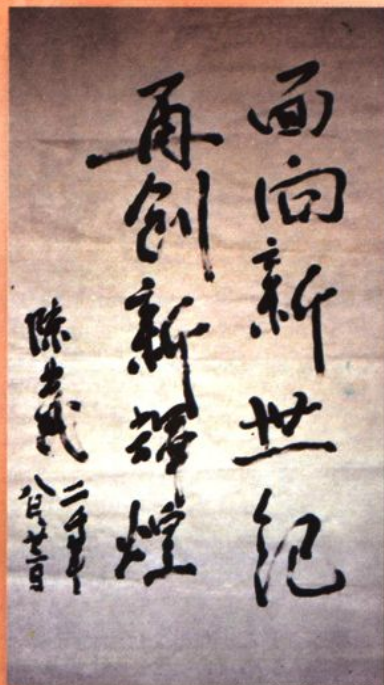 面向新世纪
再创新辉煌
陈士我
二千年
八月廿二日